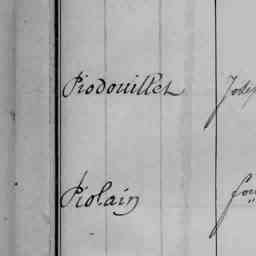 Piodouillet
Piolain